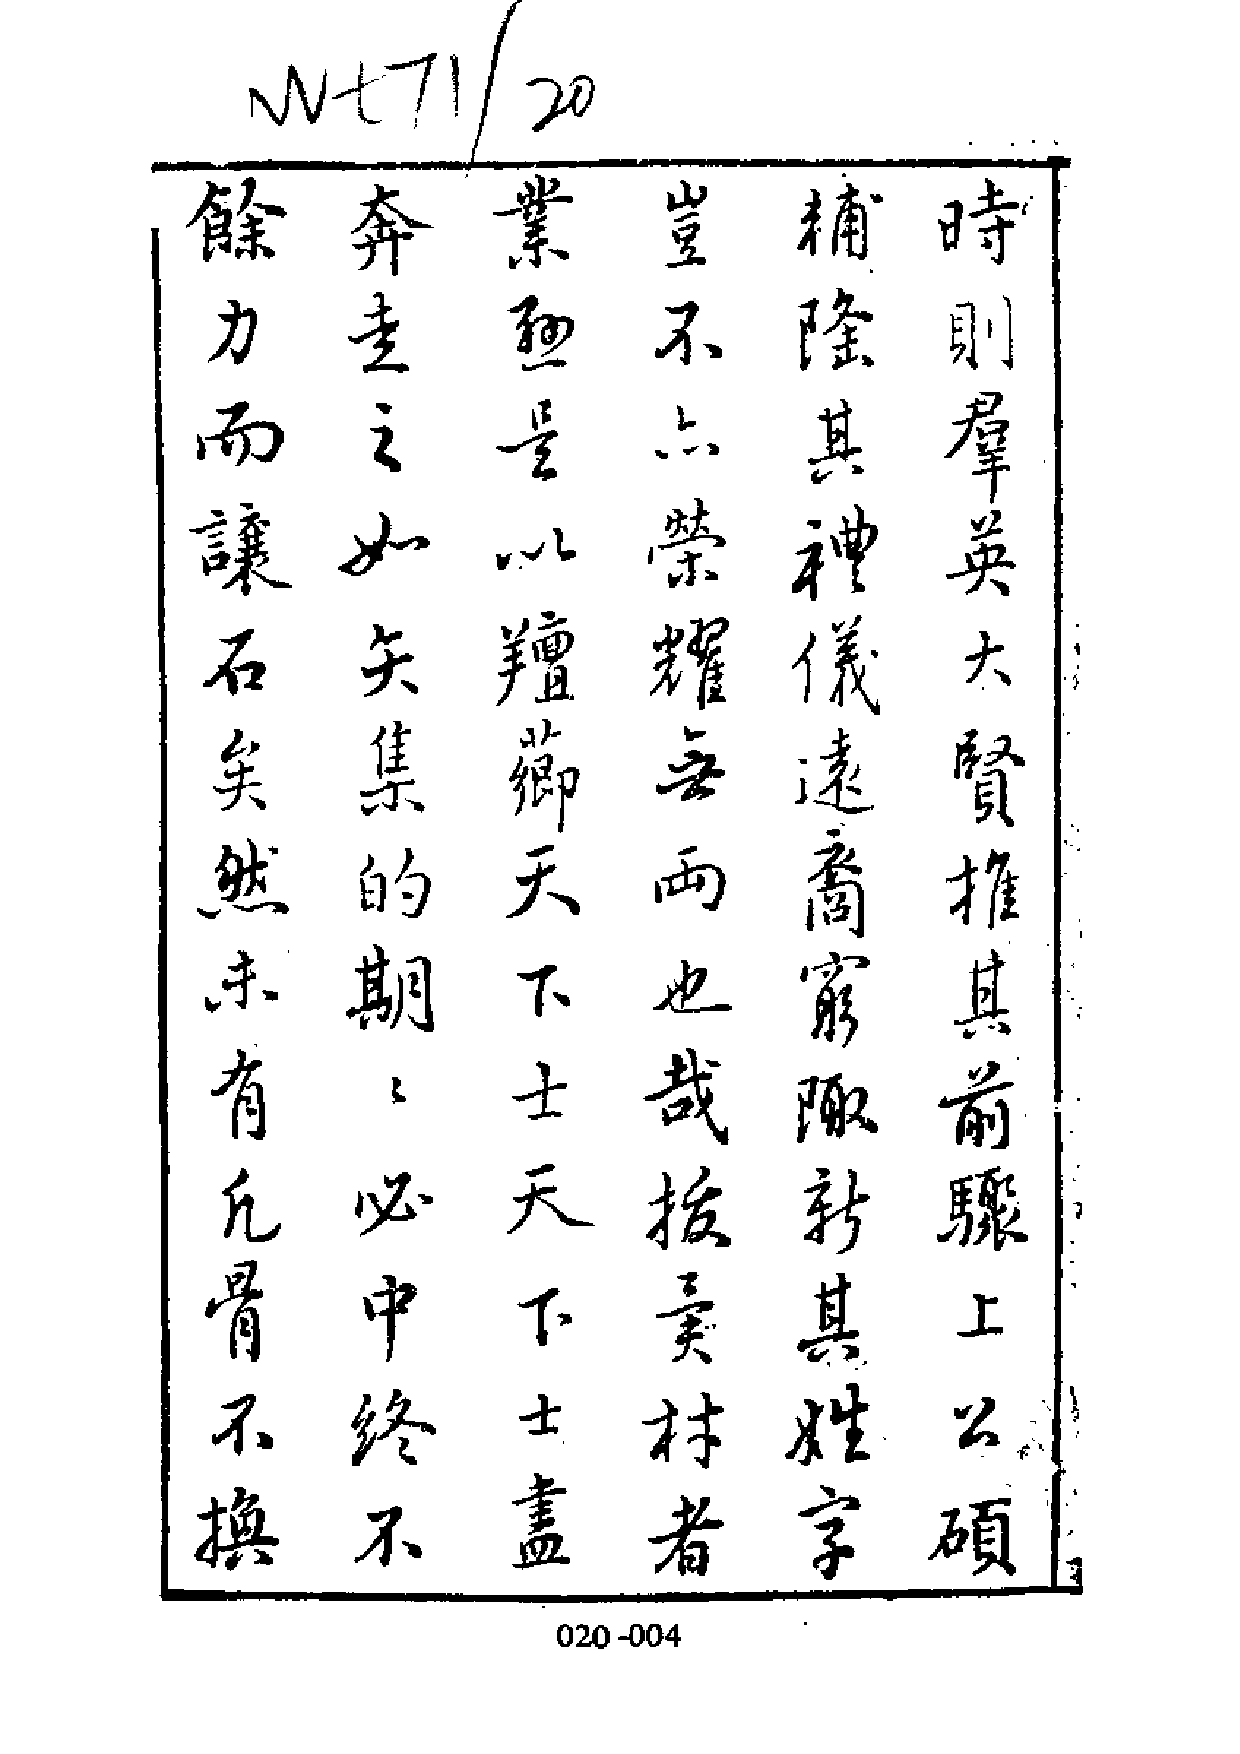 Nt71/20
時則羣英大賢推其前驟上公碩
輔隆其禮儀遠裔窮陬新其姓字
豈不亦榮耀無兩也哉拔彙材者
業懸是以羶薌天下士天下士盡
奔走之如矢集的期〻必中終不
餘力而讓石矣然未有凡骨不換
020-004